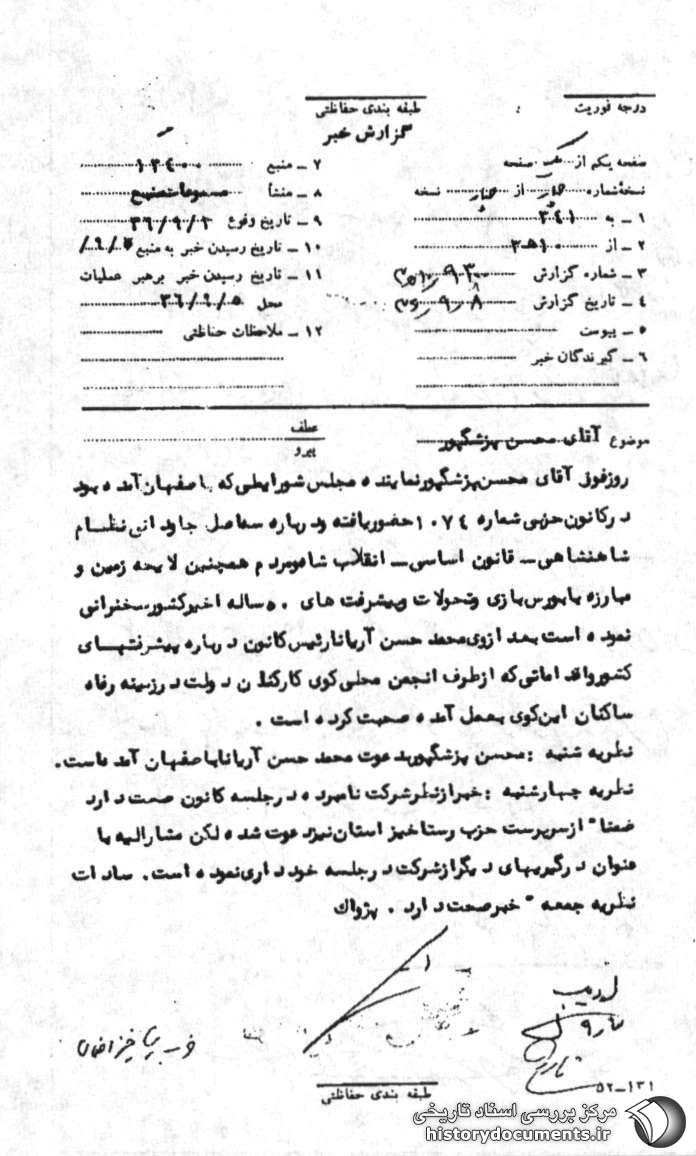 درجه فوریت :
طبقه بندی حفاظتی
گزارش خبر
صفحه یکم از یک صفحه
نسخه شماره چهار از چهار نسخه
۱ ـ به ۳۴۱
۲ ـ از ۱۰ ه‍ ۲
۳ ـ شماره گزارش
۴ ـ تاریخ گزارش
۵ ـ پیوست
۶ ـ گیرندگان خبر
۷ ـ منبع ۱۳۴۰۰
۸ ـ منشأ مسموعات منبع
۹ ـ تاریخ وقوع ۳۶/۹/۲
۱۰ ـ تاریخ رسیدن خبر به منبع
۱۱ ـ تاریخ رسیدن خبر برهبر عملیات
محل ۳۶/۹/۵
۱۲ ـ ملاحظات حفاظتی
موضوع آقای محسن پزشگپور
عطف
پیرو
روز فوق آقای محسن پزشگپور نماینده مجلس شورایملی که باصفهان آمده بود
در کانون حزبی شماره ۱۰۷۴ حضور یافته و درباره سه اصل جاودانی نظام
شاهنشاهی ـ قانون اساسی ـ انقلاب شاه و مردم همچنین لایحه زمین و
مبارزه با بورس بازی و تحولات و پیشرفت های ۵۰ ساله اخیر کشور سخنرانی
نموده است بعد از وی محمد حسن آریانا رئیس کانون درباره پیشرفتهای
کشور و اقداماتی که از طرف انجمن محلی کوی کارکنان دولت در زمینه رفاه
ساکنان این کوی بعمل آمده صحبت کرده است .
نظریه شنبه : محسن پزشگپور بدعوت محمد حسن آریانا باصفهان آمده است .
نظریه چهارشنبه : خبر از نظر شرکت نامبرده در جلسه کانون صحت دارد
ضمناً از سرپرست حزب رستاخیز استان نیز دعوت شده لکن مشارالیه با
عنوان درگیریهای دیگر از شرکت در جلسه خودداری نموده است . سادات
نظریه جمعه خبر صحت دارد . پژواک
۵۲ـ۱۳۱
طبقه بندی حفاظتی
مرکز بررسی اسناد تاریخی
historydocuments.ir